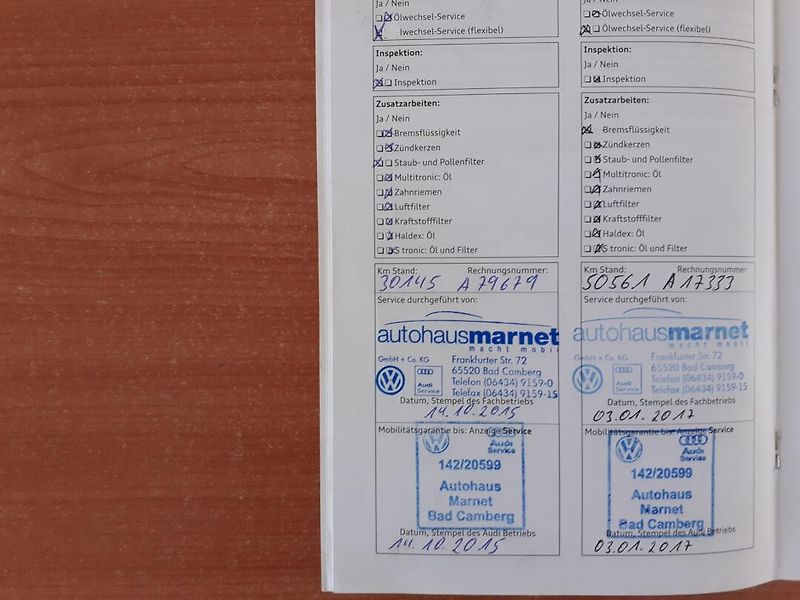 Ja / Nein
Ölwechsel-Service
lwechsel-Service (flexibel)
Inspektion:
Ja / Nein
Inspektion
Zusatzarbeiten:
Ja / Nein
Bremsflüssigkeit
Zündkerzen
Staub- und Pollenfilter
Multitronic: Öl
Zahnriemen
Luftfilter
Kraftstofffilter
Haldex: Öl
S tronic: Öl und Filter
Km Stand: Rechnungsnummer:
30145 A79679
Service durchgeführt von:
autohausmarnet
macht mobil
GmbH + Co. KG
Frankfurter Str. 72
65520 Bad Camberg
Telefon (06434) 9159-0
Telefax (06434) 9159-15
Audi
Service
Datum, Stempel des Fachbetriebs
14.10.2015
Mobilitätsgarantie bis: Anzeige Service
Audi
Service
142/20599
Autohaus
Marnet
Bad Camberg
Datum, Stempel des Audi Betriebs
14.10.2015
Ja / Nein
Ölwechsel-Service
Ölwechsel-Service (flexibel)
Inspektion:
Ja / Nein
Inspektion
Zusatzarbeiten:
Ja / Nein
Bremsflüssigkeit
Zündkerzen
Staub- und Pollenfilter
Multitronic: Öl
Zahnriemen
Luftfilter
Kraftstofffilter
Haldex: Öl
S tronic: Öl und Filter
Km Stand: Rechnungsnummer:
50561 A17333
Service durchgeführt von:
autohausmarnet
macht mobil
GmbH + Co. KG
Frankfurter Str. 72
65520 Bad Camberg
Telefon (06434) 9159-0
Telefax (06434) 9159-15
Audi
Service
Datum, Stempel des Fachbetriebs
03.01.2017
Mobilitätsgarantie bis: Anzeige Service
Audi
Service
142/20599
Autohaus
Marnet
Bad Camberg
Datum, Stempel des Audi Betriebs
03.01.2017